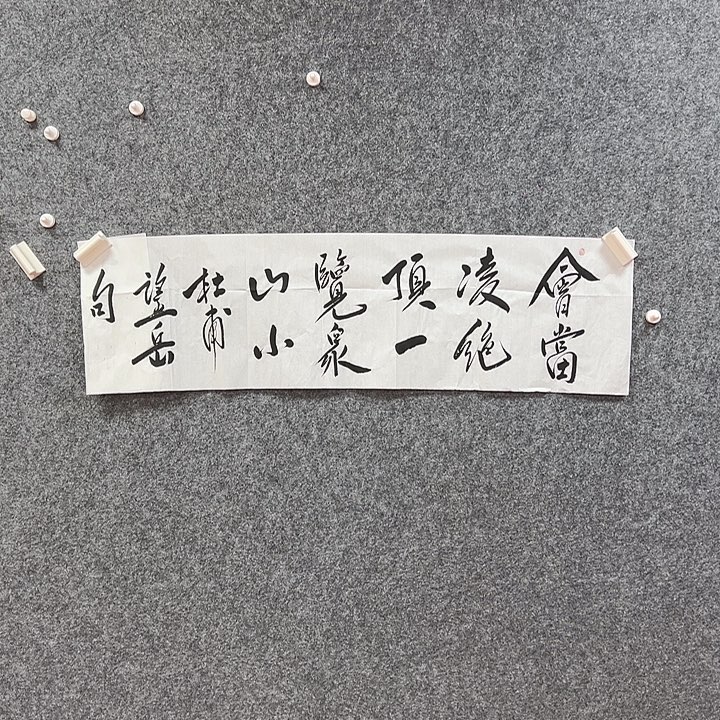 會當
凌絶
頂一
覽衆
山小
杜甫
望岳
句